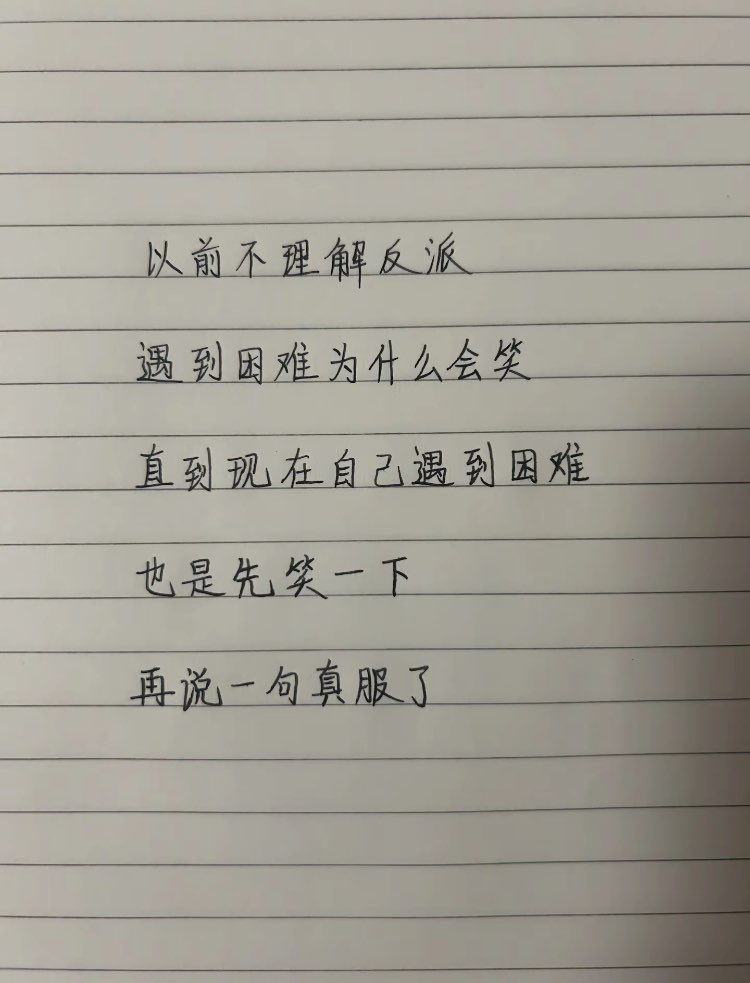 以前不理解反派
遇到困难为什么会笑
直到现在自己遇到困难
也是先笑一下
再说一句真服了